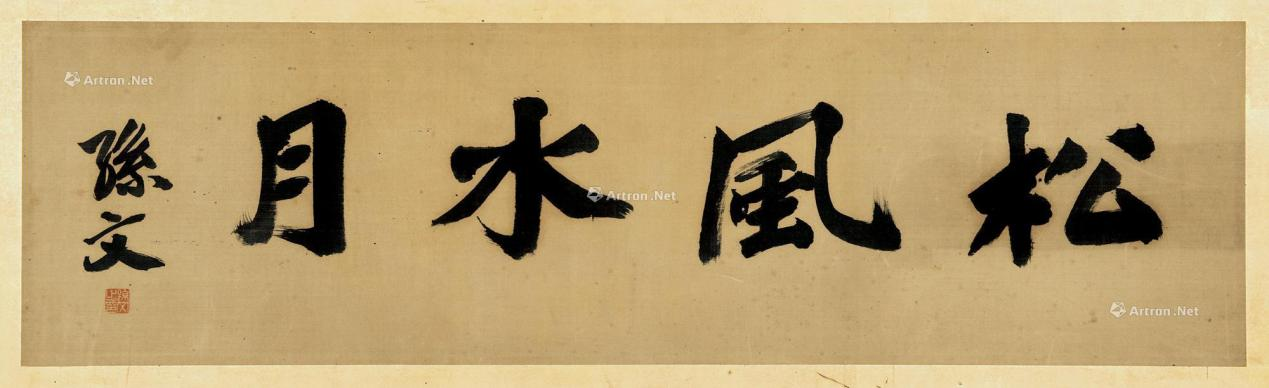 松風水月
孫文
孫文之印
Artron.Net
Artron.Net
Artron.Net